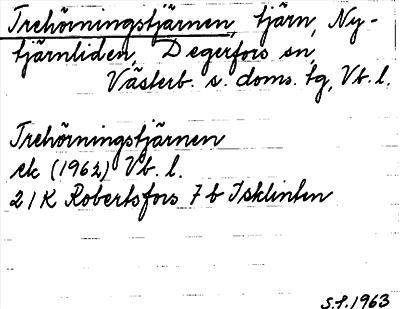 Trehörningstjärnen, tjärn, Ny-
tjärnliden, Degerfors sn,
Västerb. s. doms. tg, Vb. l.
Trehörningstjärnen
ek (1962) Vb. l.
21K Robertsfors 7b Isklinten
S.f. 1963